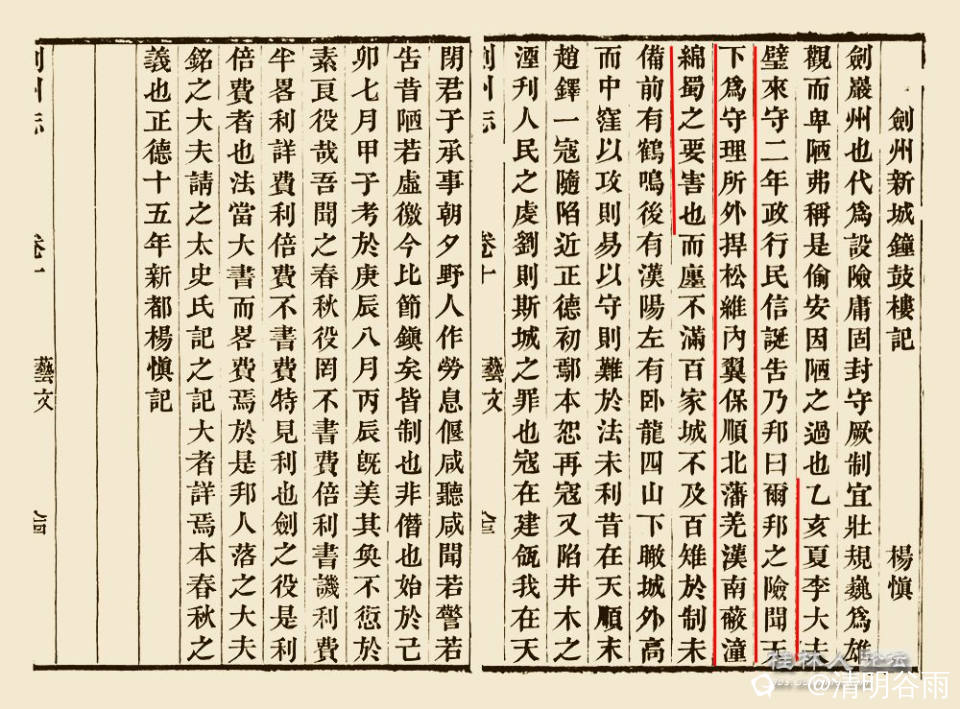 劍州新城鐘鼓樓記 楊慎
劍巖州也代爲設險庸固封守厥制宜壯規巍爲雄
觀而卑陋弗稱是偷安因陋之過也乙亥夏李大夫
璧來守二年政行民信誕告乃邦曰爾邦之險聞天
下爲守理所外捍松維內翼保順北藩羌漢南蔽潼
綿蜀之要害也而廛不滿百家城不及百雉於制未
備前有鶴鳴後有漢陽左有卧龍四山下瞰城外高
而中窪以攻則易以守則難於法未利昔在天順末
趙鐸一寇隨陷近正德初鄢本恕再寇又陷井木之
湮刋人民之虔劉則斯城之罪也寇在建瓴我在天
劍州志 卷十 藝文
閉君子承事朝夕野人作勞息偃咸聽咸聞若警若
告昔陋若虛徹今比節鎭矣皆制也非僭也始於己
卯七月甲子考於庚辰八月丙辰旣美其奐不愆於
素亟役哉吾聞之春秋役罔不書費倍利書譏利費
半畧利詳費利倍費不書費特見利也劍之役是利
倍費者也法當大書而畧費焉於是邦人落之大夫
銘之大夫請之太史氏記之記大者詳焉本春秋之
義也正德十五年新都楊愼記
劍州志 卷十 藝文
桂林人论坛
@清明谷雨